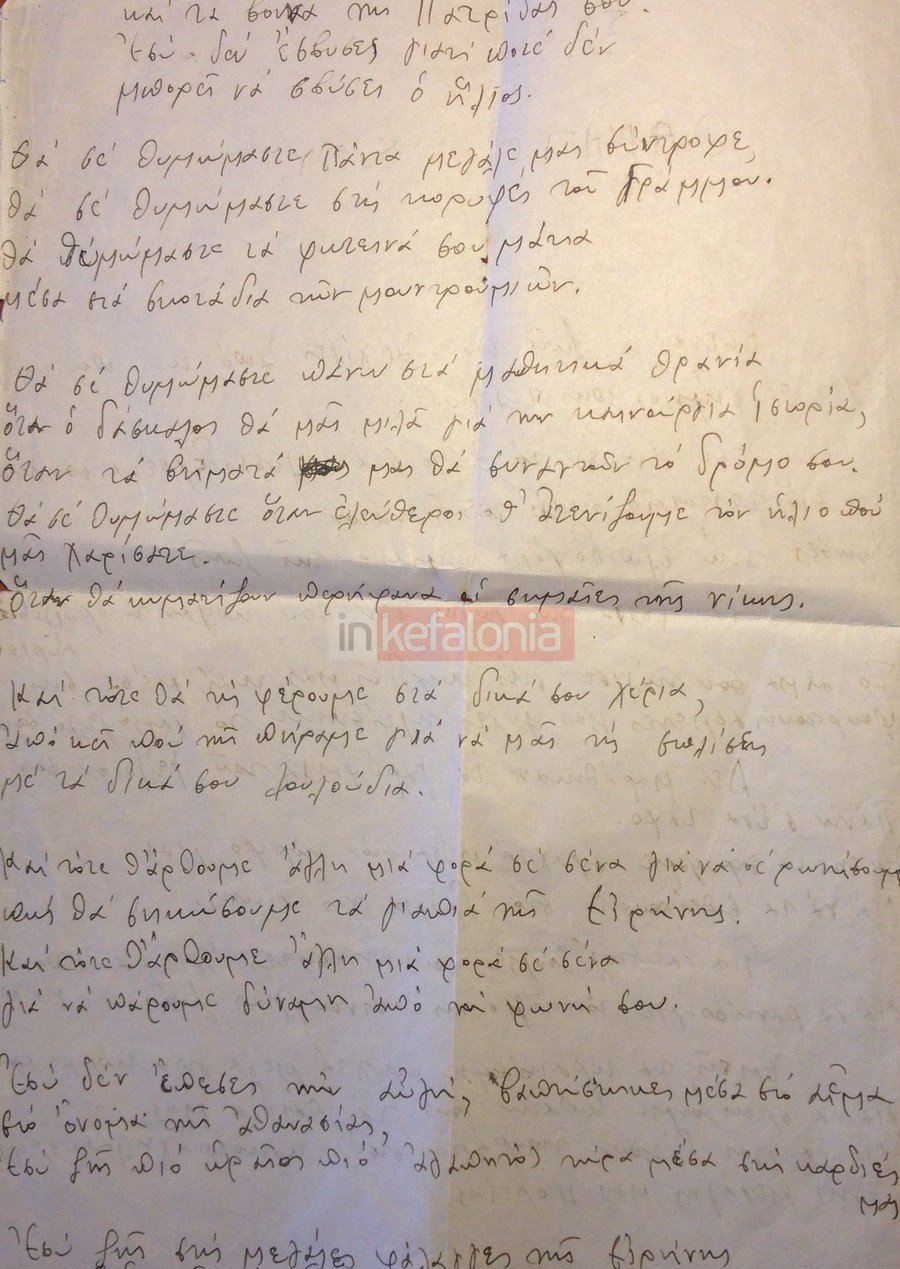 καί τα βουνα τῆς Πατρίδας σου.
Ἐσύ δέν ἔσβυσες γιατί ποτέ δέν
μπορεῖ νά σβύσει ὁ ἥλιος.
Θά σέ θυμώμαστε πάντα μεγάλε μας σύντροφε,
θά σέ θυμώμαστε στίς κορυφές τοῦ Γράμμου.
θά θυμώμαστε τά φωτεινά σου μάτια
μέσα στά σκοτάδια τῶν μουντρουμιῶν.
Θά σέ θυμώμαστε πάνω στά μαθητικά θρανία
ὅταν ὁ δάσκαλος θά μᾶς μιλᾶ γιά τήν καινούργια ἱστορία,
ὅταν τά βήματά μας θά συναντοῦν τό δρόμο σου.
Θά σέ θυμώμαστε ὅταν ἐλεύθεροι θ' ἀτενίζουμε τόν ἥλιο πού
μᾶς χαρίσατε.
Ὅταν θά κυματίζουν περήφανα οἱ σημαῖες τῆς νίκης.
inkefalonia
Καί τότε θά τή φέρουμε στά δικά σου χέρια,
Ἀπό κεῖ πού τήν πήραμε γιά νά μᾶς τή στολίσεις
μέ τά δικά σου λουλούδια.
Καί τότε θἄρθουμε ἄλλη μιά φορά σέ σένα γιά νά σέ ρωτήσουμε
πῶς θά σηκώσουμε τά γιαπιά τῆς Εἰρήνης.
Καί τότε θἄρθουμε ἄλλη μιά φορά σέ σένα
γιά νά πάρουμε δύναμη ἀπό τή φωνή σου.
Ἐσύ δέν ἔπεσες τήν αὐγή, βαπτίστηκες μέσα στό αἷμα
στό ὄνομα τῆς ἀθανασίας,
Ἐσύ ζῆς πιό ὡραῖος πιό ἀγαπητός τώρα μέσα στίς καρδιές
μας
Ἐσύ ζῆς στίς μεγάλες φάλαγγες τῆς Εἰρήνης